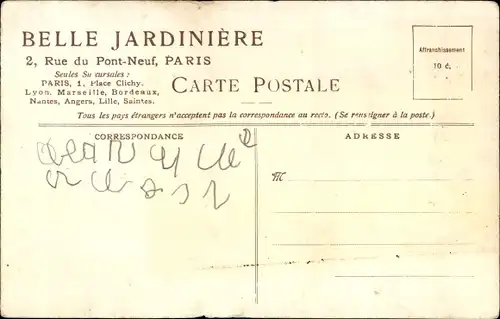 BELLE JARDINIÈRE
2, Rue du Pont-Neuf, PARIS
Seules Succursales :
PARIS, 1, Place Clichy.
Lyon, Marseille, Bordeaux,
Nantes, Angers, Lille, Saintes.
CARTE POSTALE
Affranchissement
10 c.
Tous les pays étrangers n'acceptent pas la correspondance au recto. (Se renseigner à la poste.)
CORRESPONDANCE
ADRESSE
M